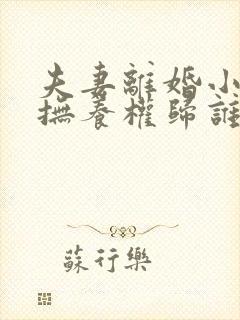 夫妻離婚小
撫養權歸誰
蘇行樂